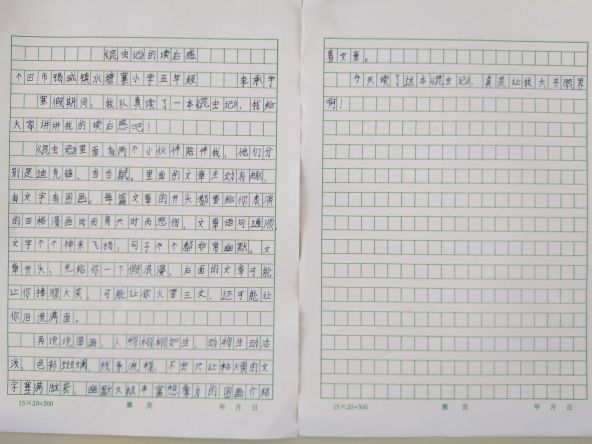 《昆虫记》的读后感
个旧市锡城镇水塘寨小学五年级 李承宇
寒假期间，我认真读了一本《昆虫记》，我给
大家讲讲我的读后感吧！
《昆虫记》里面有两个小伙伴陪伴我，他们分
别是迪克猫、当当鼠。里面的文章生动有趣，
有文字有图画。每篇文章的开头都要给你表演
的四格漫画时而有兴时而悲伤，文章语句通顺，
文字个个神采飞扬，句子个个都非常幽默。文
章开头，先给你一下假浪漫，后面的文章可能
让你捧腹大笑，可能让你火冒三丈，还可能让
你泪流满面。
再说说图画，人物栩栩如生，动物生动活
泼，色彩斑斓，线条流畅，不会只让枯燥的文
字塞满脏条。幽默又极丰富想象力的图画介绍
着文章。
今天读了这本《昆虫记》，真是让我大开眼界
啊！
15×20=300 第 页 年 月 日
15×20=300 第 页 年 月 日